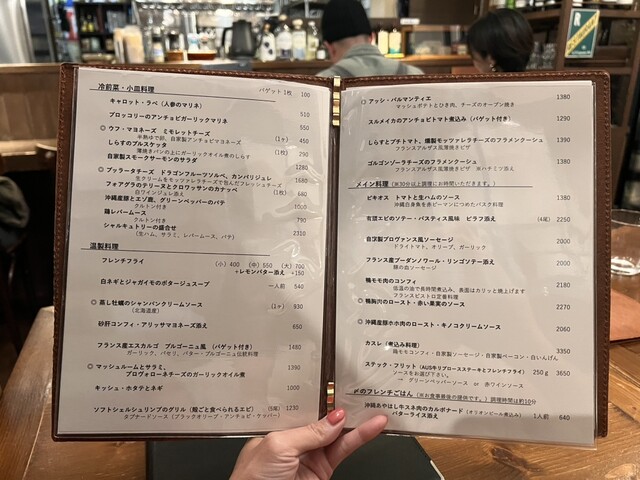 冷前菜・小皿料理
バゲット1枚 100
キャロット・ラペ（人参のマリネ） 510
ブロッコリーのアンチョビガーリックマリネ 550
◎ ウフ・マヨネーズ ミモレットチーズ （1ヶ） 450
半熟ゆで卵、自家製アンチョビマヨネーズ
しらすのブルスケッタ （1枚） 290
薄焼きパンの上にガーリックオイル煮のしらす
自家製スモークサーモンのサラダ 1280
◎ ブッラータチーズ ドラゴンフルーツソルベ、カンパリジュレ 1680
生クリームをモッツァレラチーズで包んだフレッシュチーズ
フォアグラのテリーヌとクロワッサンのカナッペ （1枚） 680
白ワインジュレ添え
沖縄産豚とエゾ鹿、グリーンペッパーのパテ 1000
クルトン付き
鶏レバームース 790
クルトン付き
シャルキュトリーの盛合せ 2310
（生ハム、サラミ、レバームース、パテ）
温製料理
フレンチフライ （小）400 （中）550 （大）700
＋レモンバター添え ＋150
白ネギとジャガイモのポタージュスープ 一人前 540
◎ 蒸し牡蠣のシャンパンクリームソース （1ヶ） 830
（北海道産）
砂肝コンフィ・アリッサマヨネーズ添え 650
フランス産エスカルゴ ブルゴーニュ風（バゲット付き） 1480
ガーリック、パセリ、バター・ブルゴーニュ伝統料理
◎ マッシュルームとサラミ、 1390
プロヴォローネチーズのガーリックオイル煮
キッシュ・ホタテとネギ 1000
ソフトシェルシュリンプのグリル（殻ごと食べられるエビ） （5尾） 1230
タプナードソース（ブラックオリーブ・アンチョビ・ケッパー）
◎ アッシ・パルマンティエ 1380
マッシュポテトとひき肉、チーズのオーブン焼き
スルメイカのアンチョビトマト煮込み（バゲット付き） 1290
しらすとプチトマト、燻製モッツァレラチーズのフラメンクーシュ 1390
フランスアルザス風薄焼きピザ
ゴルゴンゾーラチーズのフラメンクーシュ 1380
フランスアルザス風薄焼きピザ ※ハチミツ添え
メイン料理（※30分以上調理にお時間いただきます。）
ピキオス トマトと生ハムのソース 1760
沖縄白身魚を赤ピーマンにつめたバスク料理
有頭エビのソテー・パスティス風味 ピラフ添え （4尾） 2250
自家製プロヴァンス風ソーセージ 2000
ドライトマト、オリーブ、ガーリック
フランス産ブーダンノワール・リンゴソテー添え 2000
豚の血ソーセージ
鴨モモ肉のコンフィ 2180
低温の油で長時間煮込み、表面はカリッと焼上げます
フランスビストロ定番料理
◎ 鴨胸肉のロースト・赤い果実のソース 2270
◎ 沖縄産豚ホホ肉のロースト・キノコクリームソース 2060
カスレ（煮込み料理） 3350
鴨モモコンフィ・自家製ソーセージ・自家製ベーコン・白いんげん
ステック・フリット（AUS牛リブロースステーキとフレンチフライ） 250ｇ 3650
ソースをお選び下さい。
→ グリーンペッパーソース or 赤ワインソース
〆のフレンチごはん（※お食事最後の提供です。）調理時間は約10分
沖縄あやはしキスネ肉のカルボナード（オリオンビール煮込み） 1人前 640
バターライス添え